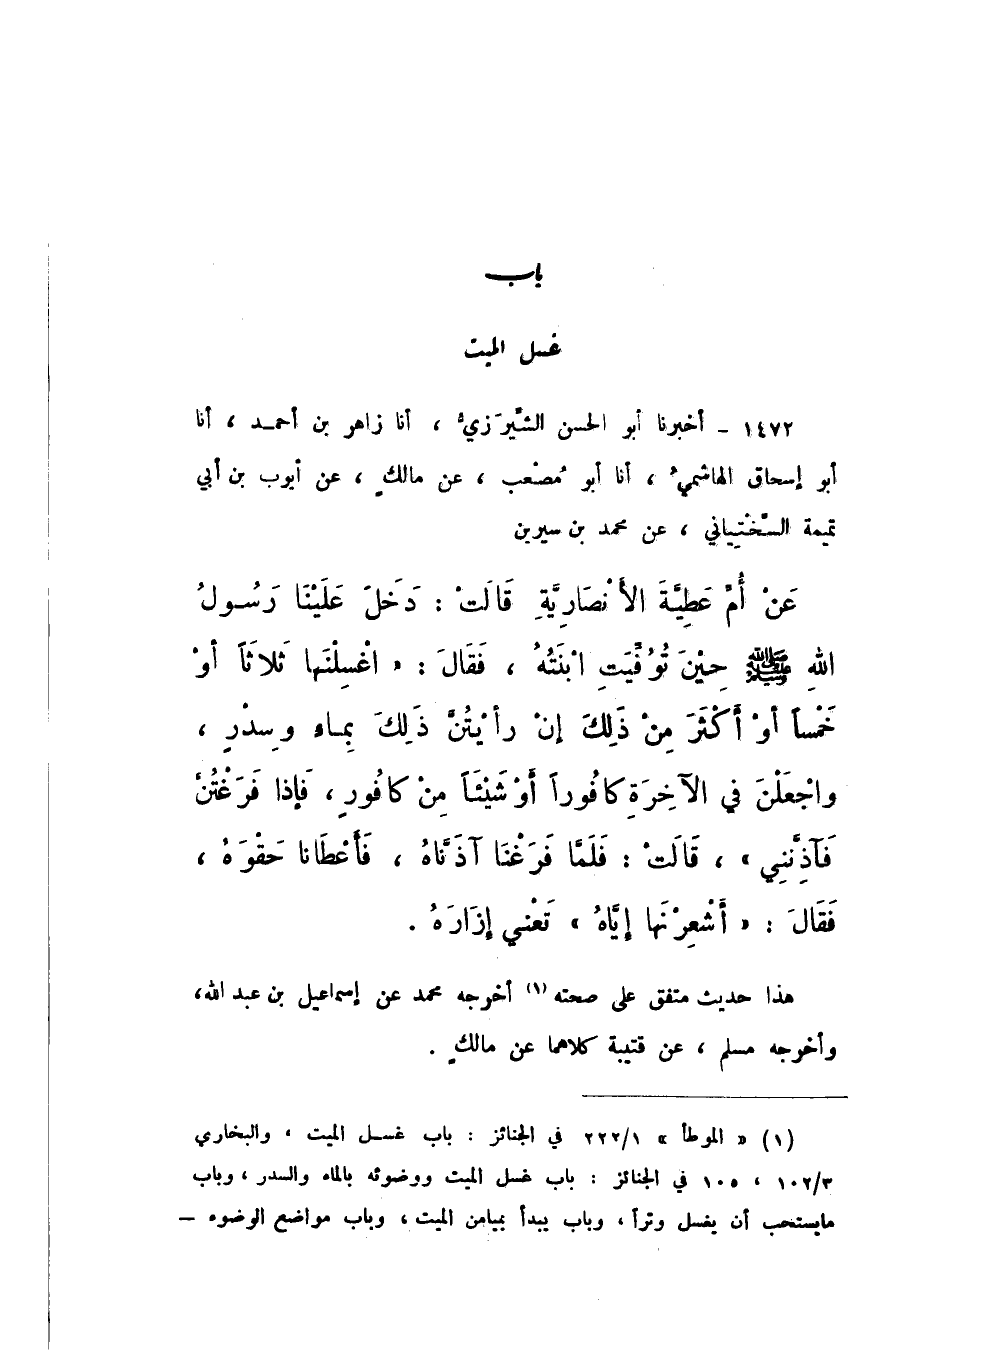 باب
غسل الميت
١٤٧٢ ـ أخبرنا أبو الحسن الشِّيرَزيُّ ، أنا زاهر بن أحمـد ، أنا
أبو إسحاق الهاشميُّ ، أنا أبو مُصْعب ، عن مالكٍ ، عن أيوب بن أبي
تميمة السَّخْتِياني ، عن محمد بن سيرين
عَنْ أُمِّ عَطِيَّةَ الأَنْصَارِيَّةِ قَالَتْ : دَخَلَ عَلَيْنَا رَسُولُ
اللهِ ﷺ حِيْنَ تُوُفِّيَتِ ابْنَتُهُ ، فَقَالَ : « اغْسِلْنَها ثَلاثَاً أوْ
خَمْساً أوْ أَكْثَرَ مِنْ ذَلِكَ إنْ رأيْتُنَّ ذَلِكَ بِماءٍ وسِدْرٍ ،
واجْعَلْنَ في الآخِرَةِ كافُوراً أَوْ شَيْئَاً مِنْ كافُورٍ ، فَإذا فَرَغْتُنَّ
فَآذِنَّنِي » ، قَالَتْ : فَلَمَّا فَرَغْنَا آذَنَّاهُ ، فَأَعْطَانا حَقْوَهُ ،
فَقَالَ : « أَشْعِرْنَها إيَّاهُ » تَعْني إزَارَهُ .
هذا حديث متفق على صحته (١) أخرجه محمد عن إسماعيل بن عبد الله،
وأخرجه مسلم ، عن قتيبة كلاهما عن مالكٍ .
(١) « الموطأ » ٢٢٢/١ في الجنائز : باب غسـل الميت ، والبخاري
١٠٢/٣ ، ١٠٥ في الجنائز : باب غسل الميت ووضوئه بالماء والسدر ، وباب
مايستحب أن يغسل وتراً ، وباب يبدأ بميامن الميت ، وباب مواضع الوضوء –